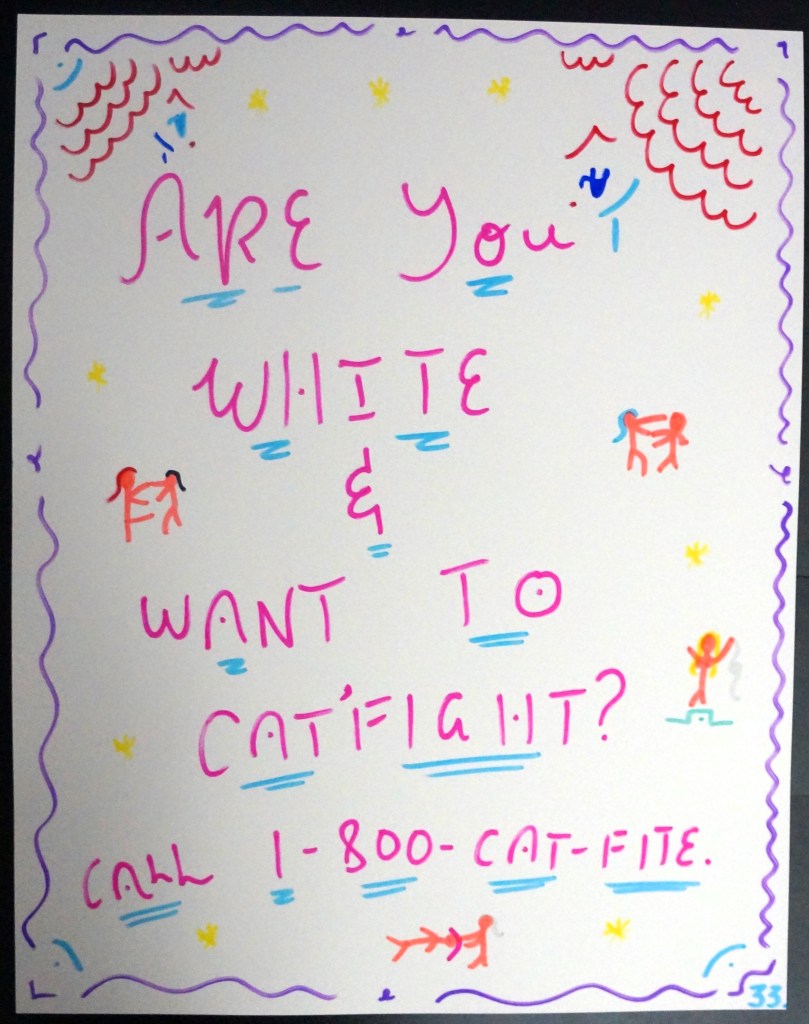 ARE You
WHITE
&
WANT TO
CAT'FIGHT?
CALL 1-800-CAT-FITE.
33.